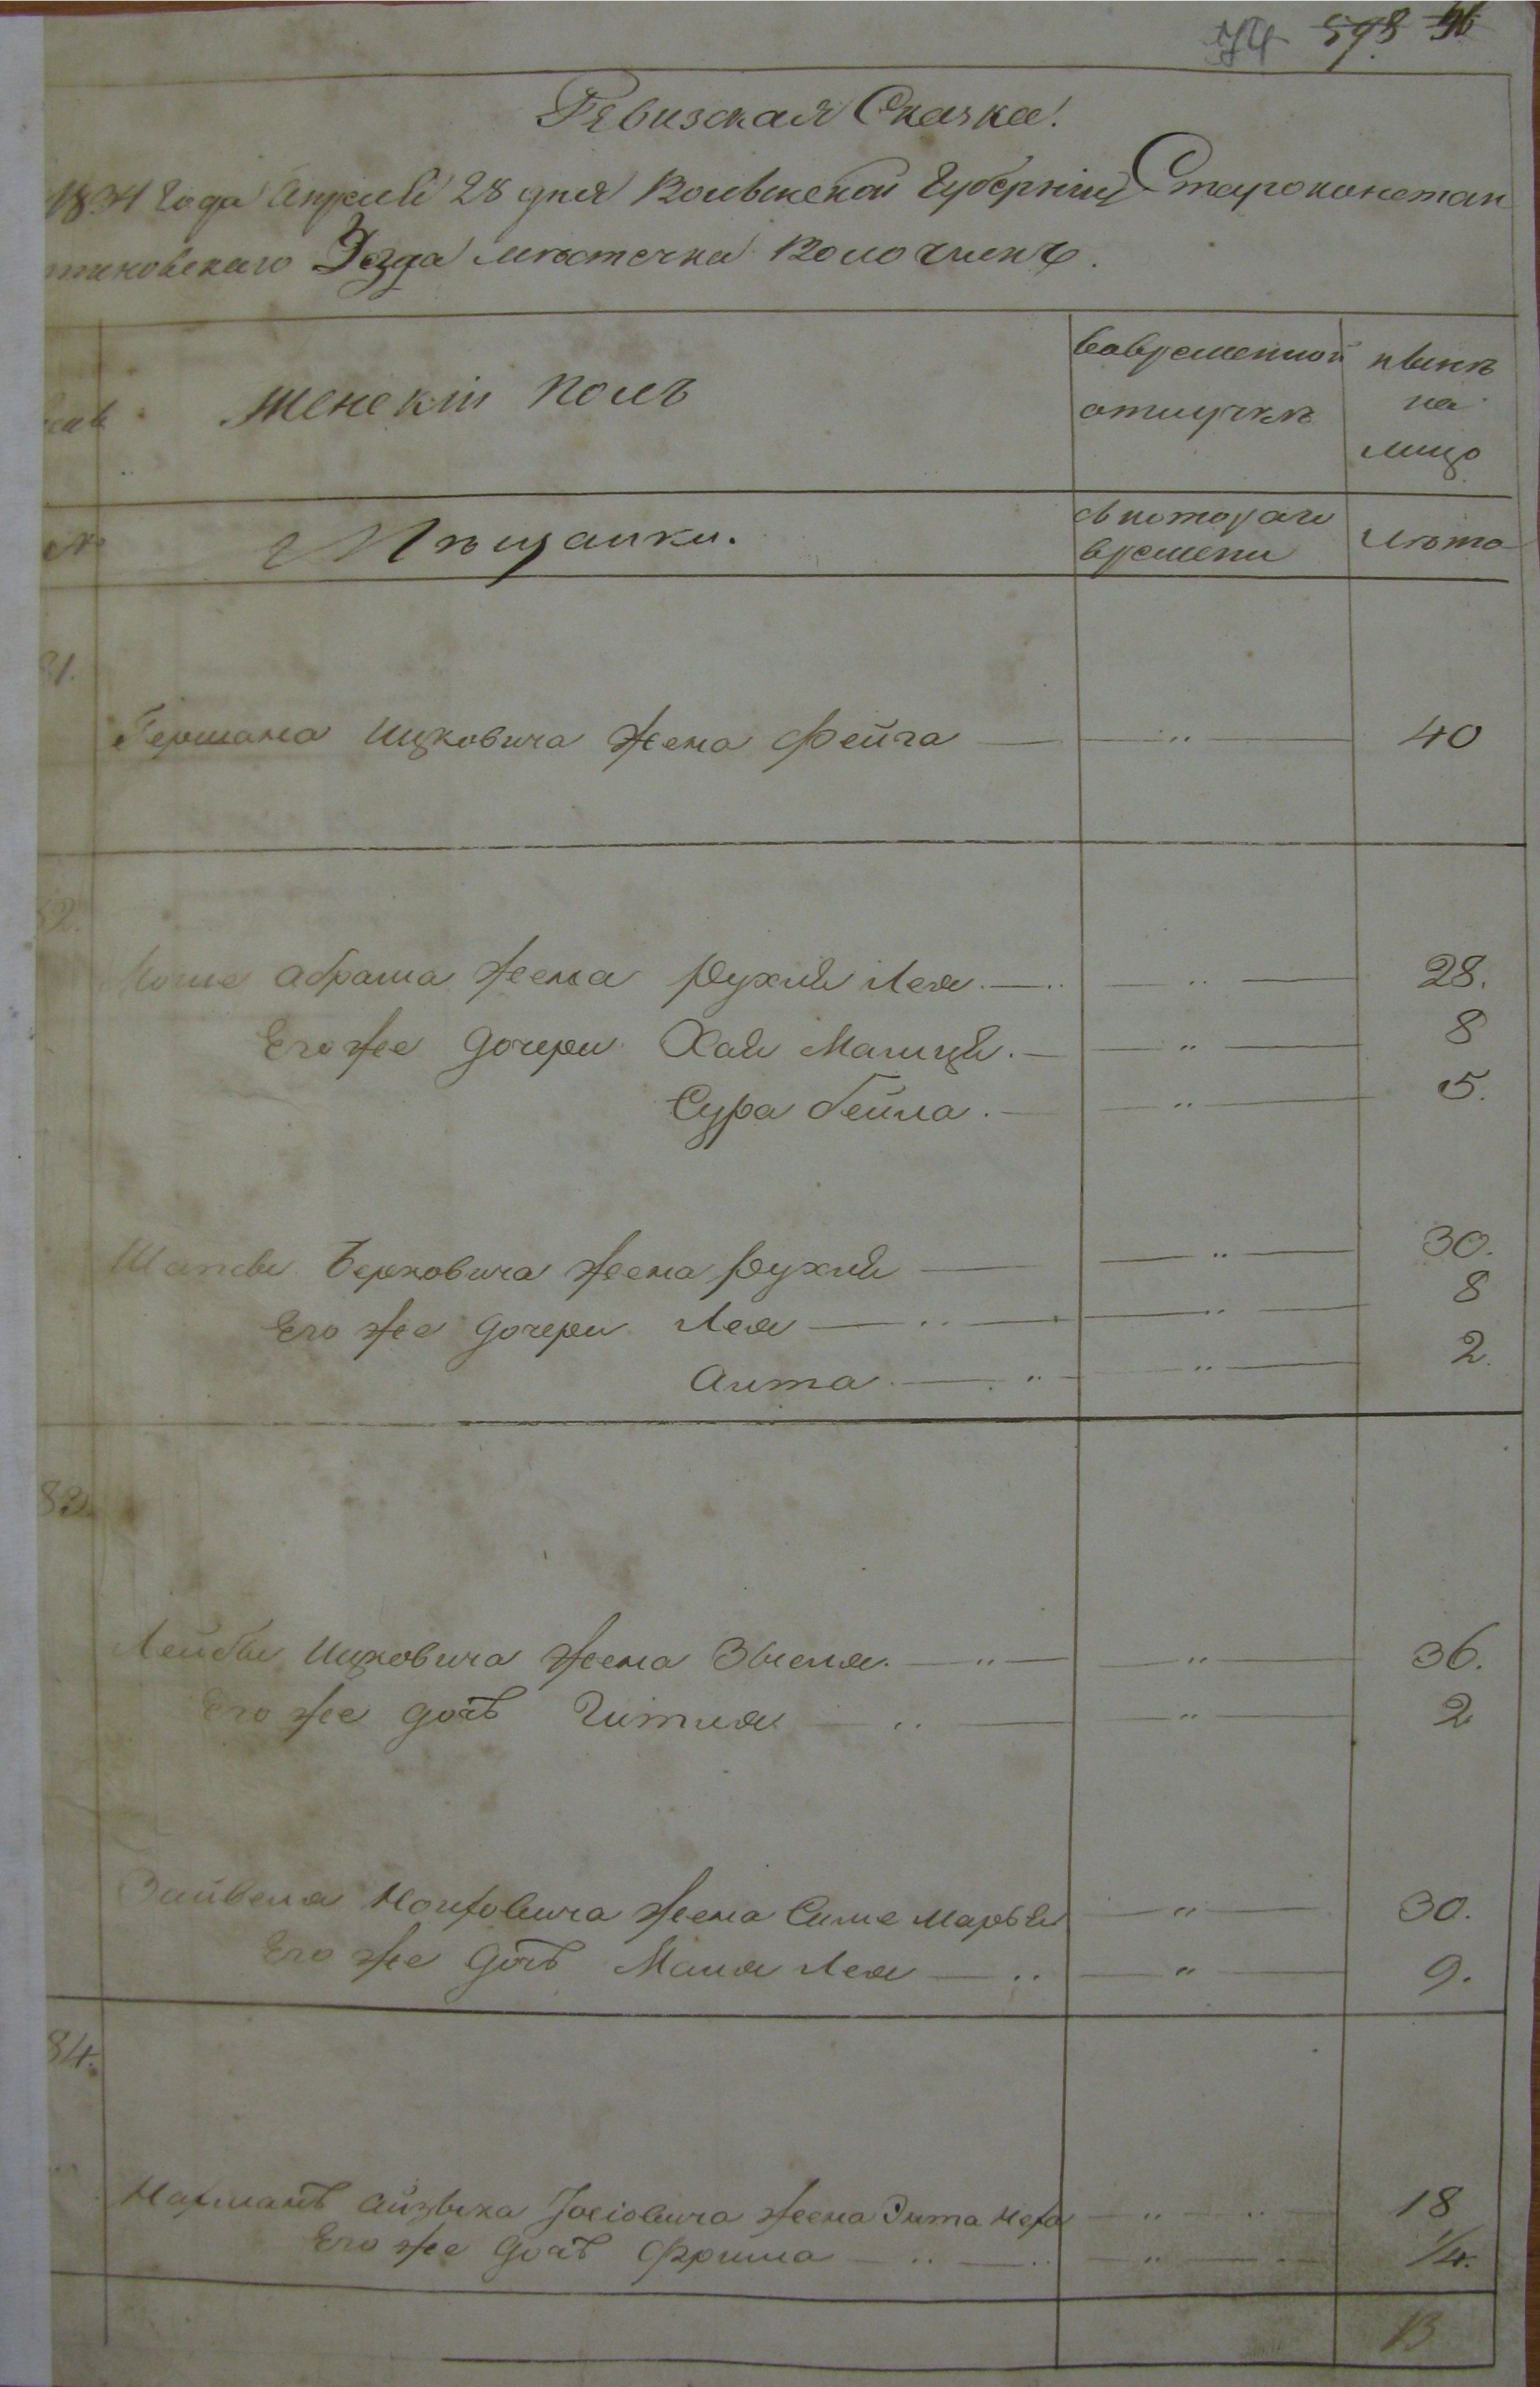 74 598 36
Ревизская Сказка!
1834 Года Апреля 28 дня Волынской Губерніи Староконстан
тиновскаго Уѣзда мѣстечка Волочискъ.
Женскій полъ
вовременной
отлучкѣ
нынѣ
на
лицо
№
Мѣщанки.
съ котораго
времени
Лѣта
81.
Гершана Ицковича жена Фейга 40
82.
Мошe Абрама жена Рухля Лея. 28.
Его же дочери Хая Малиця. 8
Сура бейла. 5.
Шапсы Берковича жена Рухля 30.
Его же дочери Лея 8
Аита 2.
83.
Лейбы Ицковича жена Злиля. 36.
Его же дочь Гитля 2
Зайвеля жена Симе Марьем 30.
Его же дочь Маля Лея 9.
84.
Нахманъ Айзыка Јосіовича жена Энта Неха 18
Его же дочь Фрима 1/4.
13